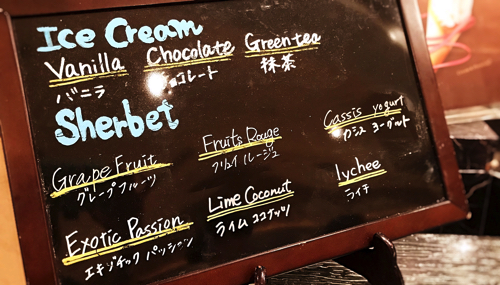 Ice Cream
Vanilla Chocolate Green tea
バニラ チョコレート 抹茶
Sherbet
Grape Fruit Fruits Rouge Cassis yogurt
グレープフルーツ フリュイ ルージュ カシス ヨーグルト
Exotic Passion Lime Coconut lychee
エキゾチック パッション ライム ココナッツ ライチ